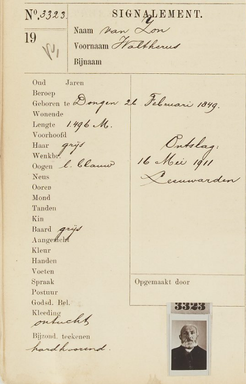 No. 3323.
SIGNALEMENT.
19
Naam van Lon
Voornaam Waltherus
Bijnaam
Oud Jaren
Beroep
Geboren te Dongen 26 Februari 1849.
Wonende
Lengte 1.496 M.
Voorhoofd
Haar grijs
Wenkbr.
Oogen l. blauw
Neus
Ooren
Mond
Tanden
Kin
Baard grijs
Aangezicht
Kleur
Handen
Voeten
Spraak
Postuur
Godsd. Bel.
Kleeding
ontucht
Bijzond. teekenen
hardhoorend.
Ontslag.
16 Mei 1911
Leeuwarden
Opgemaakt door
3323